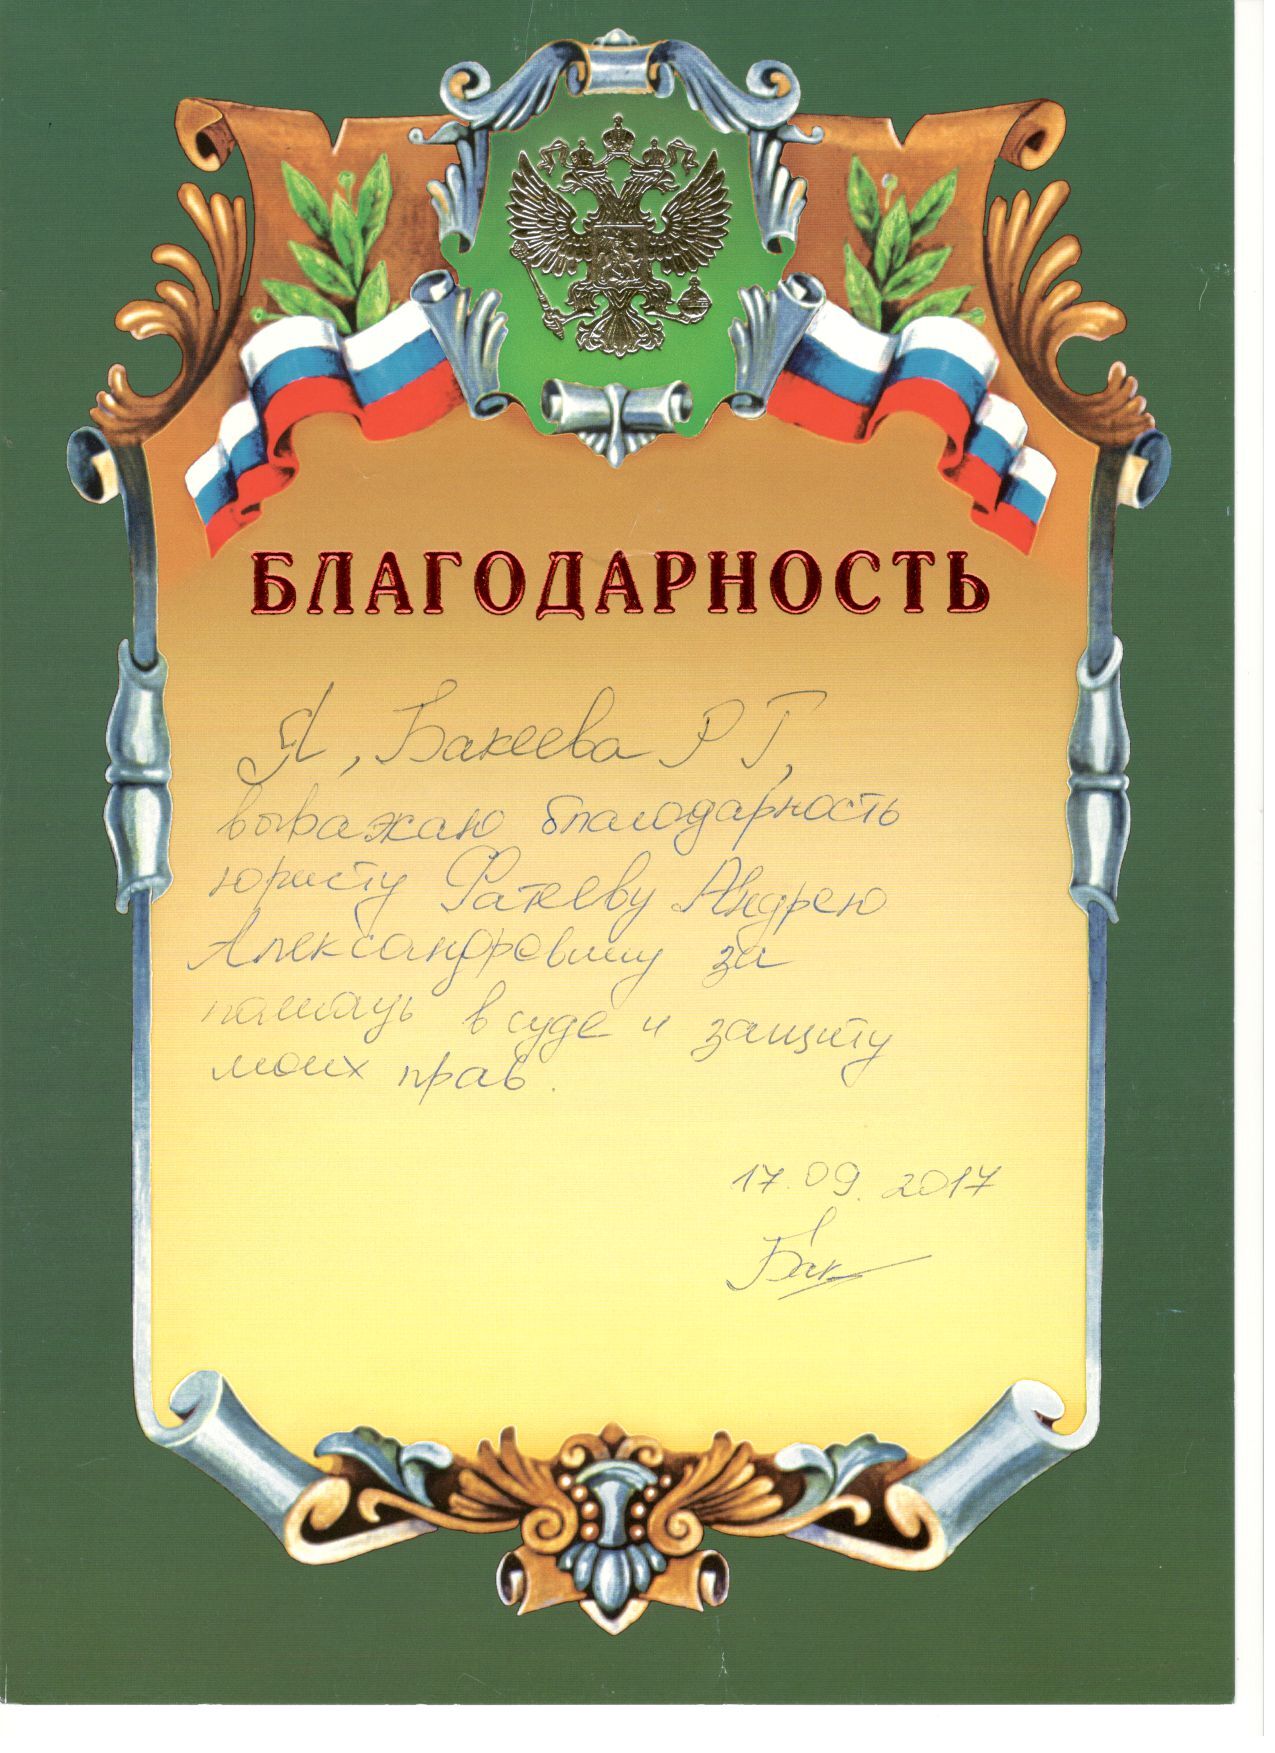 БЛАГОДАРНОСТЬ
Я, Бакеева Р Г,
выражаю благодарность
юристу Фатееву Андрею
Александровичу за
помощь в суде и защиту
моих прав.
17.09.2017
Бак